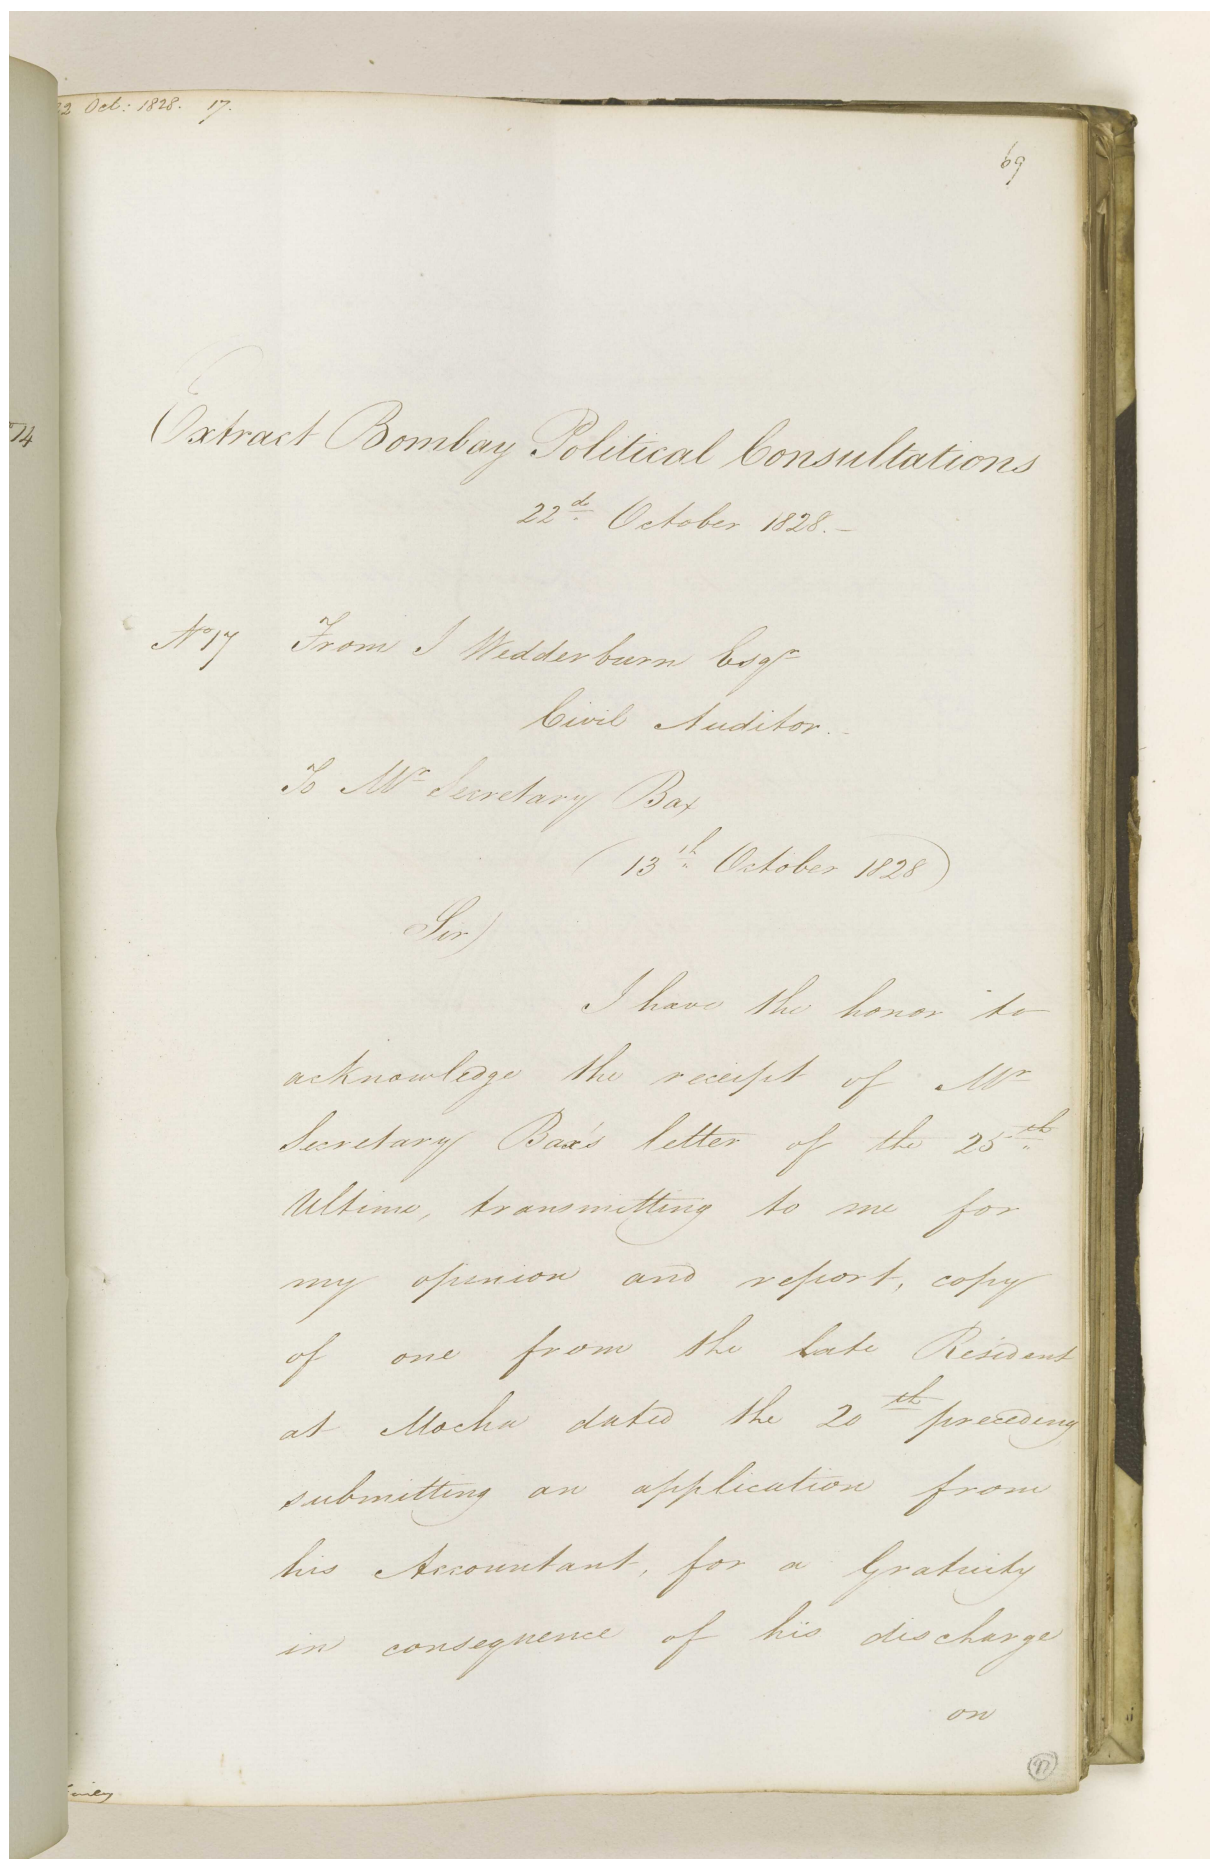 22 Oct: 1828. 17.
69
74
Extract Bombay Political Consultations
22d. October 1828.—
No 17 From J Wedderburn Esqr
Civil Auditor.—
To Mr Secretary Bax
(13th October 1828)
Sir)
I have the honor to
acknowledge the receipt of Mr
Secretary Bax's letter of the 25th
Ultimo, transmitting to me for
my opinion and report, copy
of one from the late Resident
at Mocha dated the 20th preceding
submitting an application from
his Accountant, for a Gratuity
in consequence of his discharge
on